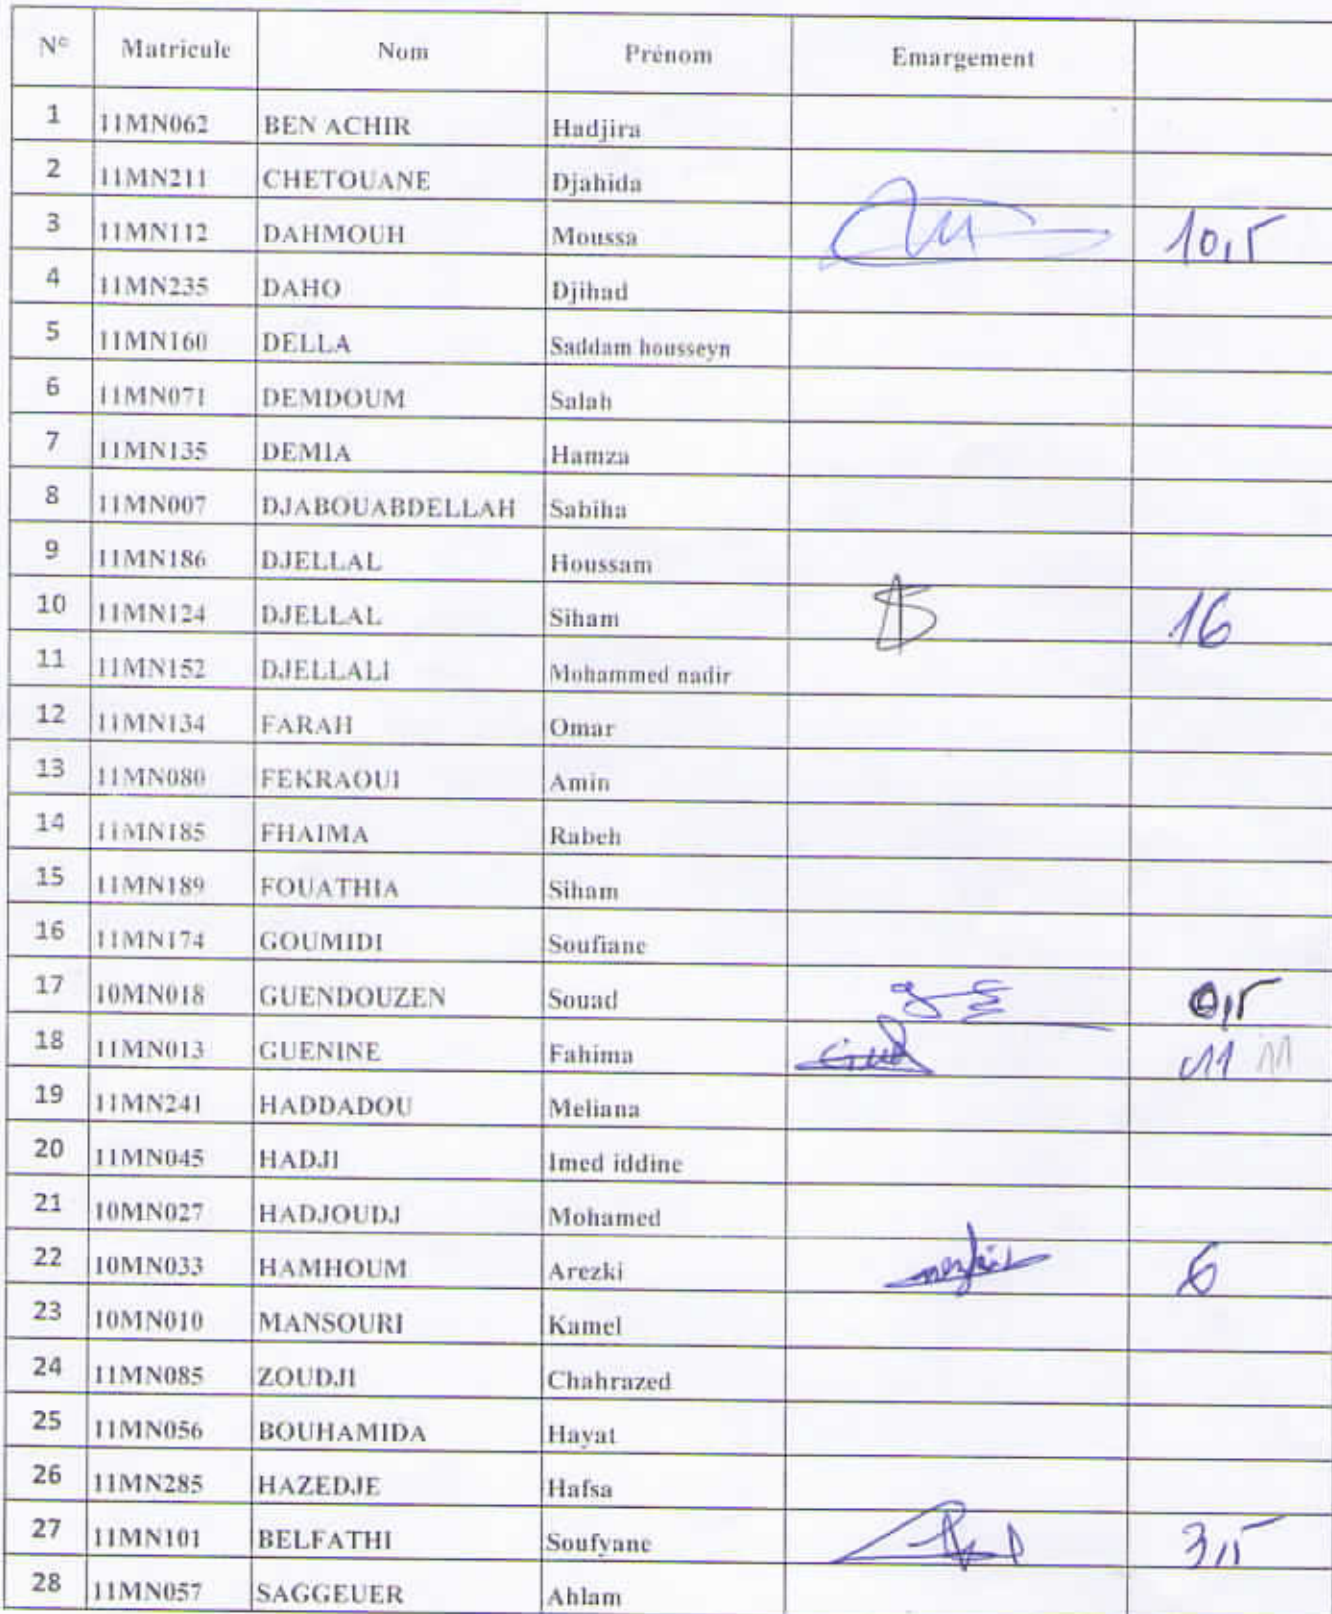 N° Matricule Nom Prénom Emargement
1 11MN062 BEN ACHIR Hadjira
2 11MN211 CHETOUANE Djahida
3 11MN112 DAHMOUH Moussa 10,5
4 11MN235 DAHO Djihad
5 11MN160 DELLA Saddam housseyn
6 11MN071 DEMDOUM Salah
7 11MN135 DEMIA Hamza
8 11MN007 DJABOUABDELLAH Sabiha
9 11MN186 DJELLAL Houssam
10 11MN124 DJELLAL Siham 16
11 11MN152 DJELLALI Mohammed nadir
12 11MN134 FARAH Omar
13 11MN080 FEKRAOUI Amin
14 11MN185 FHAIMA Rabeh
15 11MN189 FOUATHIA Siham
16 11MN174 GOUMIDI Soufiane
17 10MN018 GUENDOUZEN Souad 0,5
18 11MN013 GUENINE Fahima 11 11
19 11MN241 HADDADOU Meliana
20 11MN045 HADJI Imed iddine
21 10MN027 HADJOUDJ Mohamed
22 10MN033 HAMHOUM Arezki 6
23 10MN010 MANSOURI Kamel
24 11MN085 ZOUDJI Chahrazed
25 11MN056 BOUHAMIDA Hayat
26 11MN285 HAZEDJE Hafsa
27 11MN101 BELFATHI Soufyane 3,5
28 11MN057 SAGGEUER Ahlam